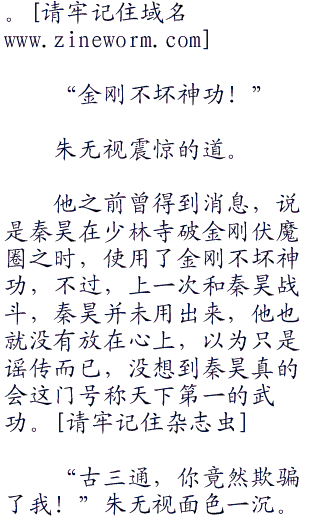 。[请牢记住域名
www.zineworm.com]
“金刚不坏神功！”
朱无视震惊的道。
他之前曾得到消息，说
是秦昊在少林寺破金刚伏魔
圈之时，使用了金刚不坏神
功，不过，上一次和秦昊战
斗，秦昊并未用出来，他也
就没有放在心上，以为只是
谣传而已，没想到秦昊真的
会这门号称天下第一的武
功。[请牢记住杂志虫]
“古三通，你竟然欺骗
了我！”朱无视面色一沉。